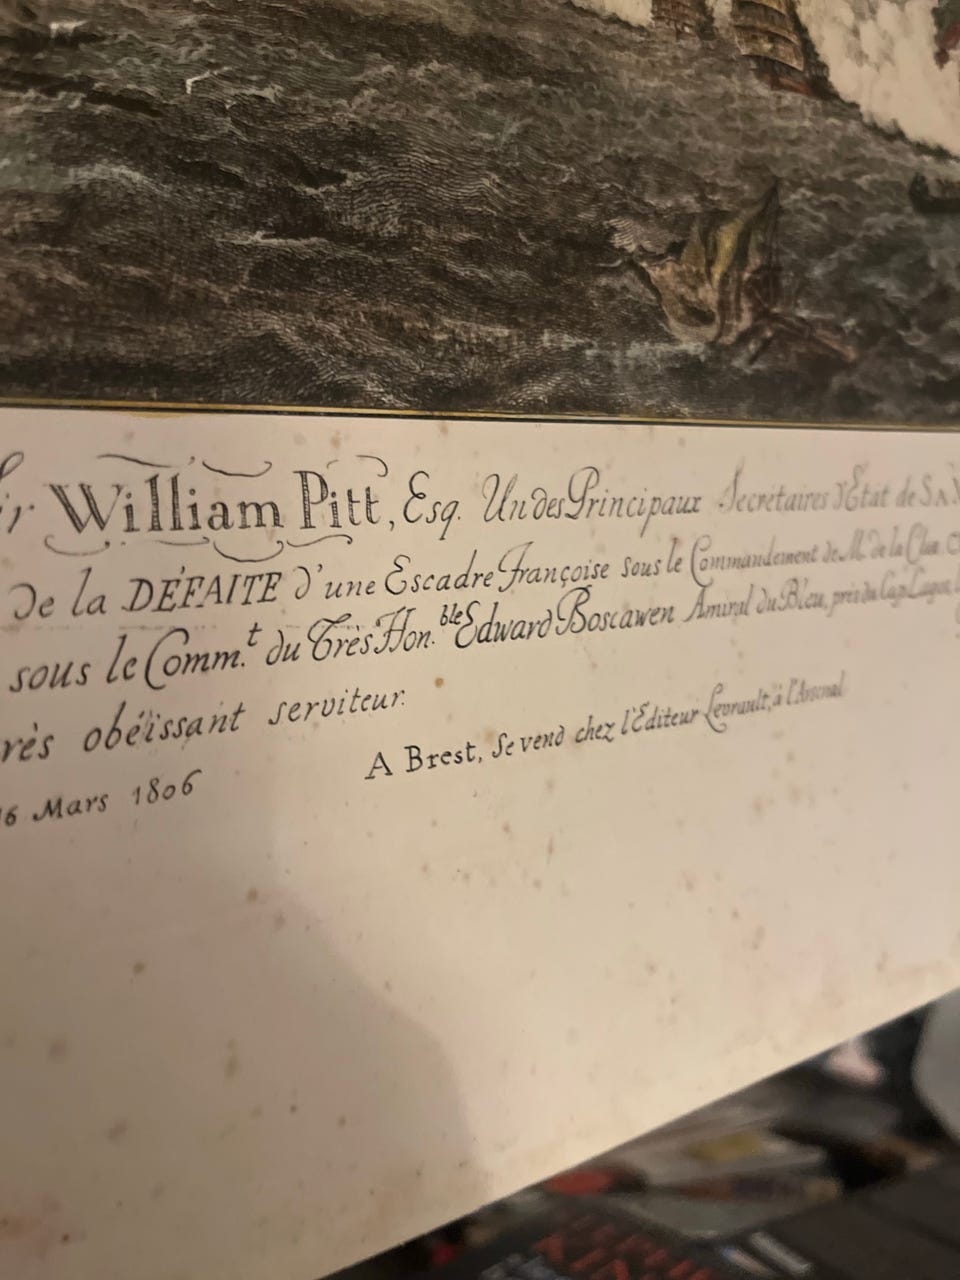 William Pitt, Esq. Un des Principaux Secrétaires d'Etat de SA
De la DÉFAITE d'une Escadre Françoise sous le Commandement de M. de la Clue
sous le Comm.t du Très Hon.ble Edward Boscawen Amiral du Bleu, près du Cap Lagos,
rès obéissant serviteur.
A Brest, Se vend chez l'Editeur Levrault, à l'Arsenal
16 Mars 1806